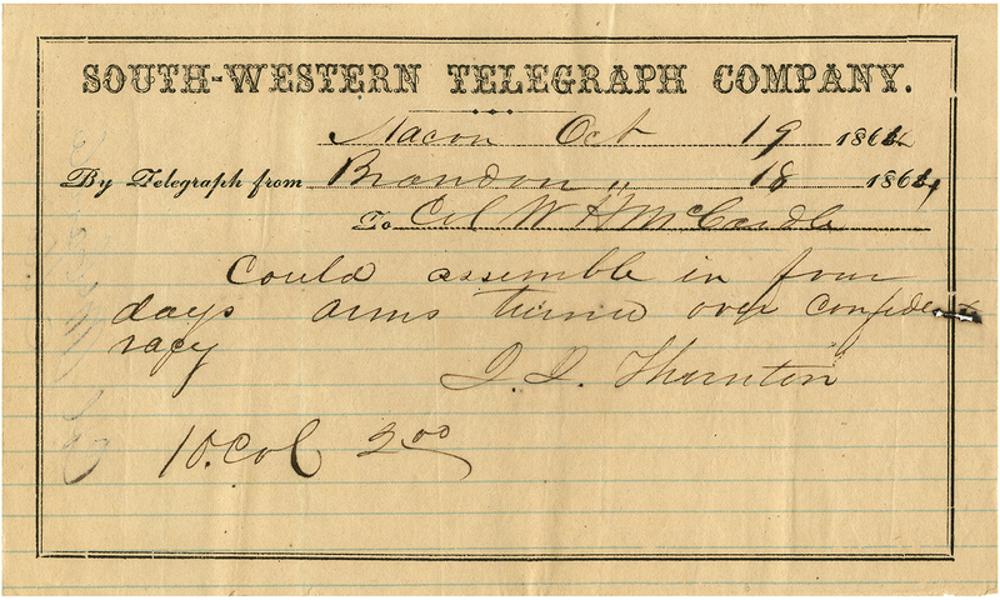 SOUTH-WESTERN TELEGRAPH COMPANY.
Macon Oct 19 1864
By Telegraph from Brandon " 18 1864
To Col W H McCardle
Could assemble in four
days arms turned over Confede
racy
J. J. Thornton
10. Col 2 00